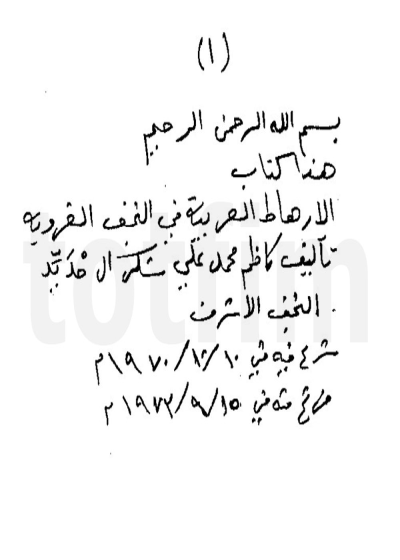 (١)
بسم الله الرحمن الرحيم
هذا كتاب
الارهاط العربية في النجف الغروية
تأليف كاظم محمد علي شكر آل
النجف الأشرف
شرع فيه في ١٩٧٠/ /١٠ م
فرغ منه في ١٩٧٣/٩/١٥ م
totfim